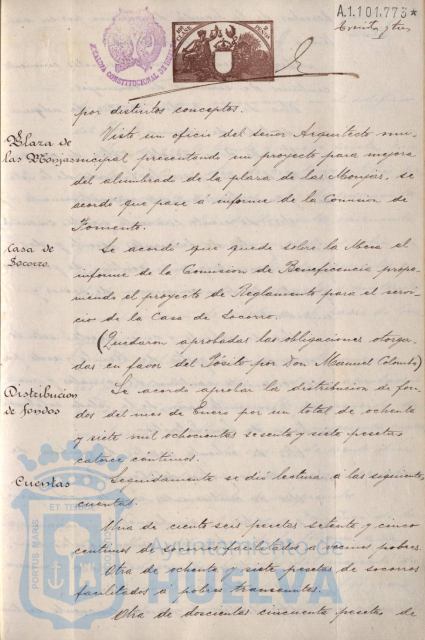 A.1.101.773*
treinta y tres
ALCALDIA CONSTITUCIONAL DE HUELVA
por distintos conceptos.
Plaza de
las Monjas
Visto un oficio del señor Arquitecto mu-
nicipal presentando un proyecto para mejora
del alumbrado de la plaza de las Monjas, se
acordó que pase á informe de la Comision de
Fomento.
Casa de
Socorro.
Se acordó que quede sobre la Mesa el
informe de la Comision de Beneficencia propo-
niendo el proyecto de Reglamento para el servi-
cio de la Casa de Socorro.
(Quedaron aprobadas las obligaciones otorga-
das en favor del Pósito por Don Manuel Colombo)
Distribucion
de fondos
Se acordó aprobar la distribucion de fon-
dos del mes de Enero por un total de ochenta
y siete mil ochocientas sesenta y siete pesetas
catorce céntimos.
Cuentas
Seguidamente se dió lectura á las siguientes
cuentas.
Una de ciento seis pesetas setenta y cinco
centimos de socorros facilitados á vecinos pobres.
Otra de ochenta y siete pesetas de socorros
facilitados á pobres transeuntes.
Otra de doscientas cincuenta pesetas de
PORTUS MARIS
ET TERRAE
Ayuntamiento de
HUELVA